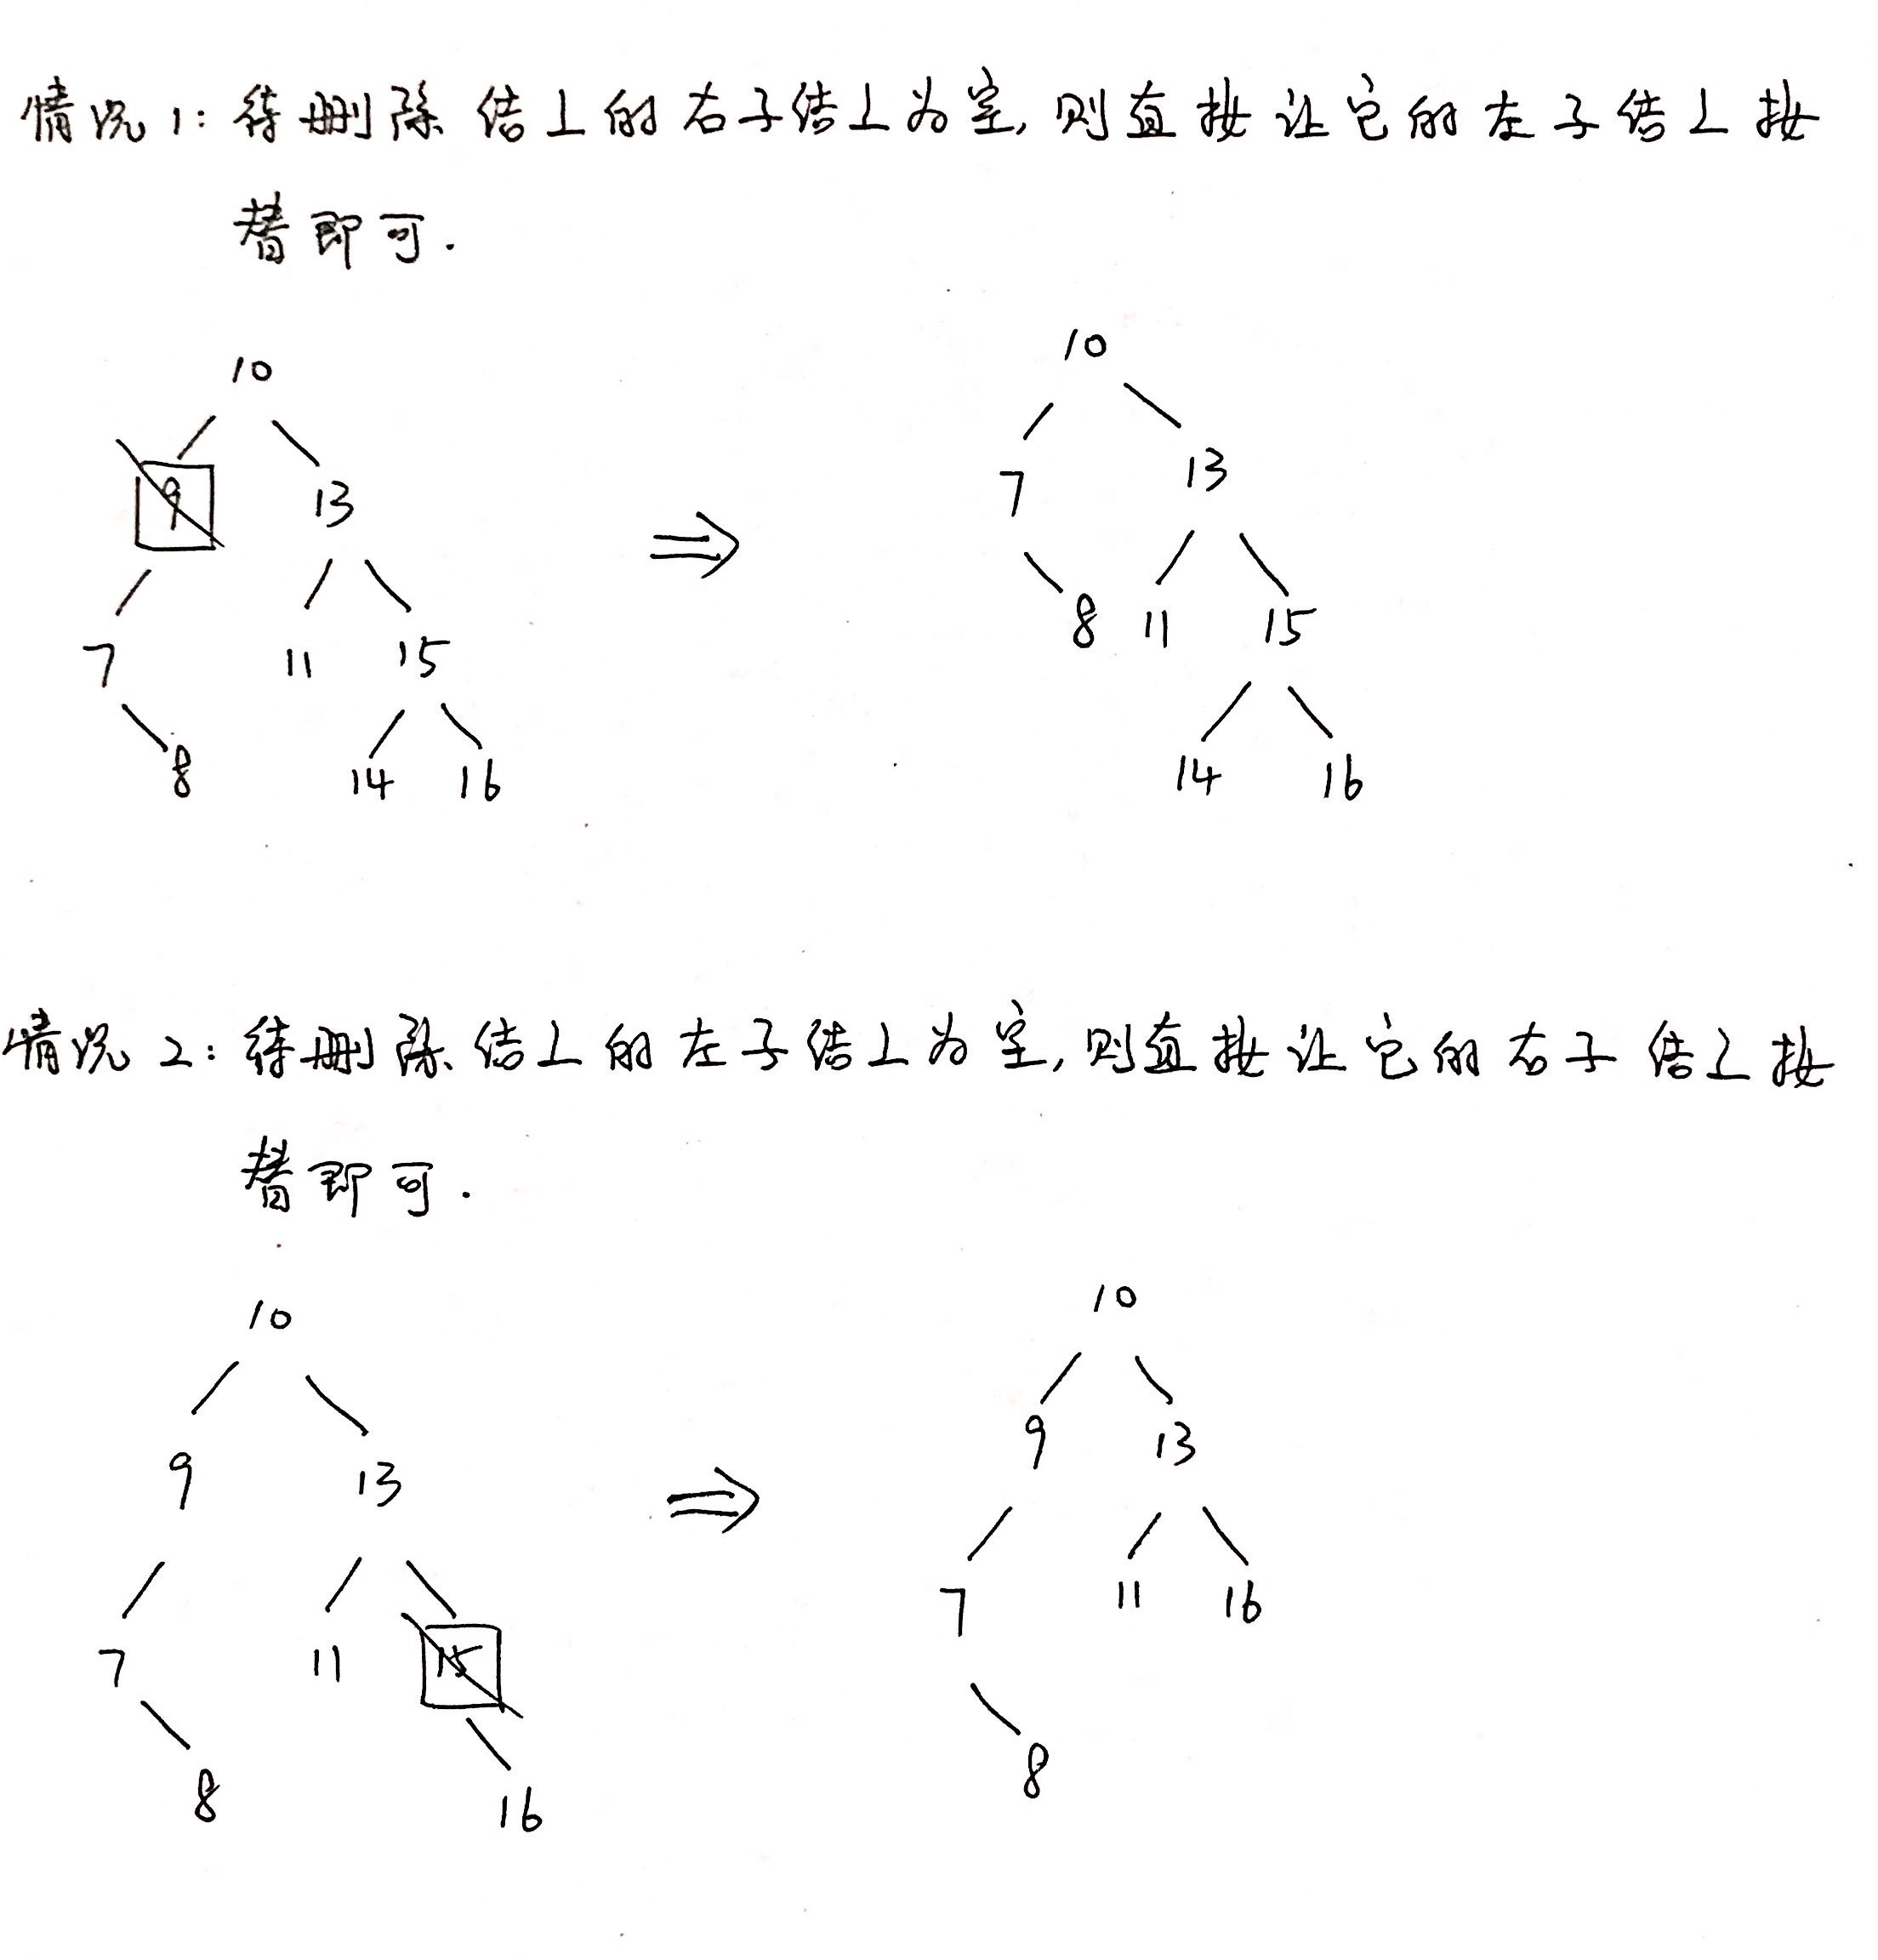 情况1: 待删除结点的右子结点为空, 则直接让它的左子结点接
替即可.
10
9 13
7 11 15
8 14 16
⇒
10
7 13
8 11 15
14 16
情况2: 待删除结点的左子结点为空, 则直接让它的右子结点接
替即可.
10
9 13
7 11 15
8 16
⇒
10
9 13
7 11 16
8